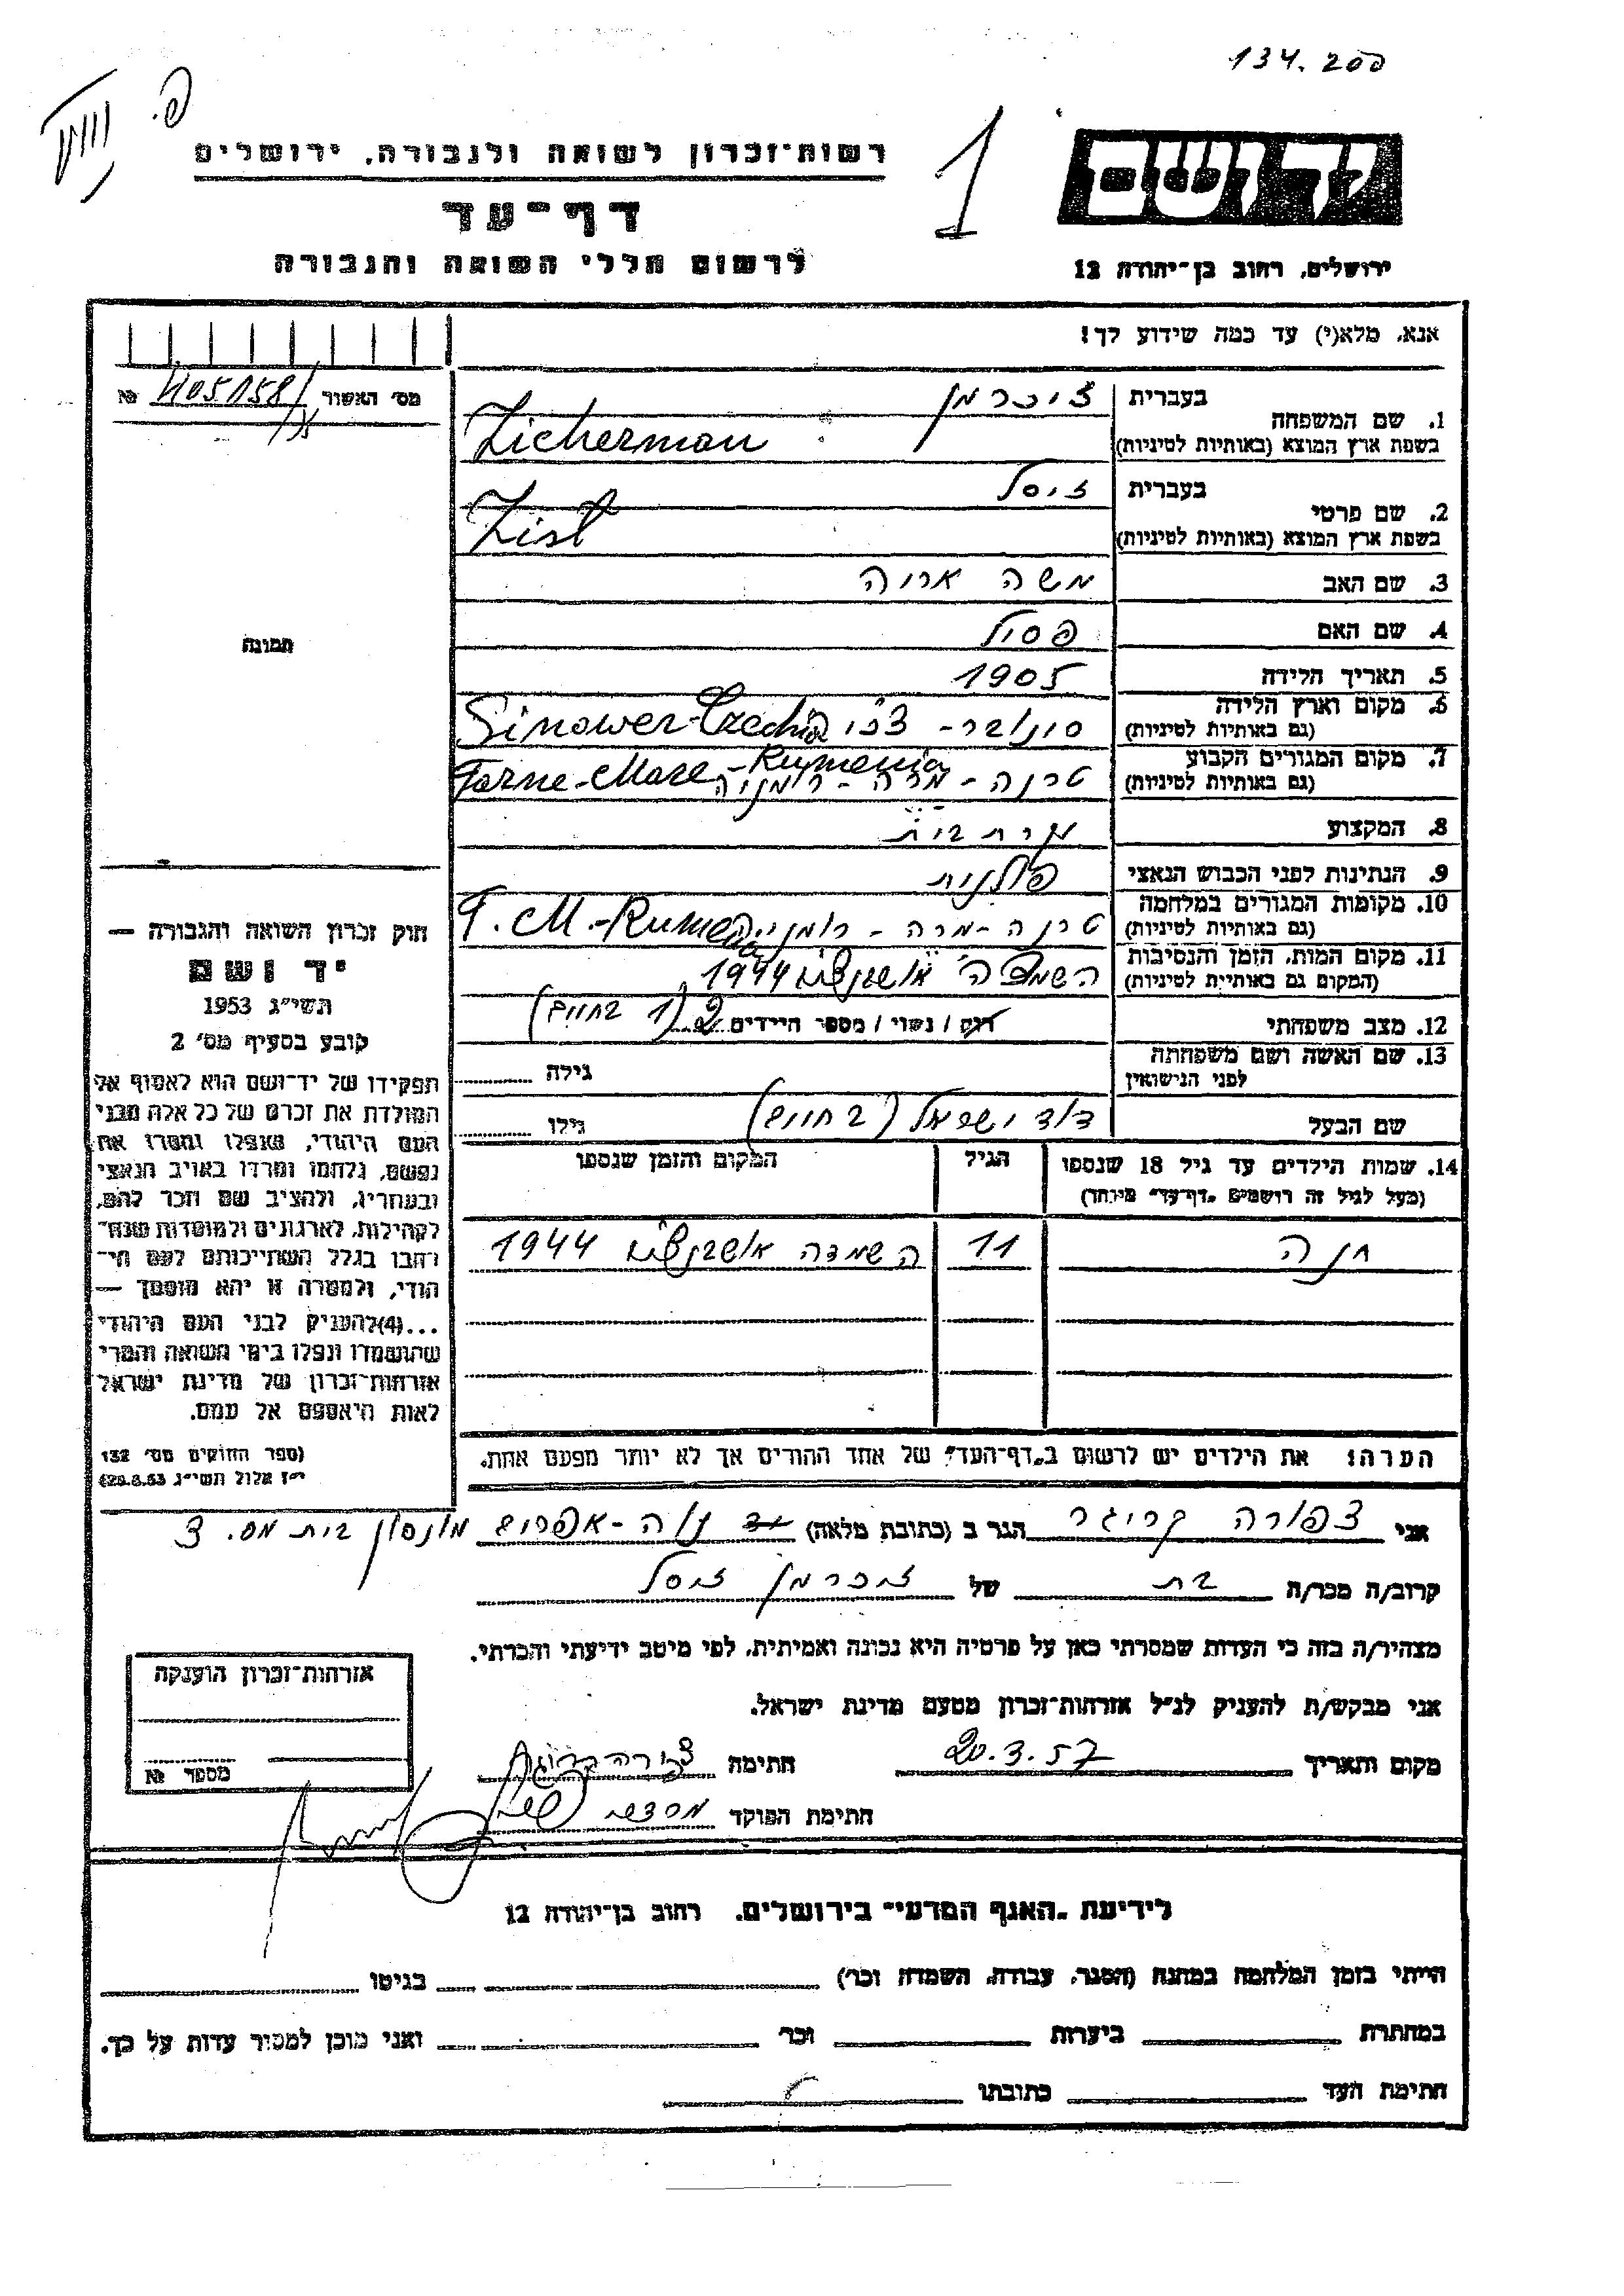 134.200
רשות־זכרון לשואה ולגבורה, ירושלים
1
יד ושם
דף־עד
לרשום חללי השואה והגבורה
ירושלים, רחוב בן־יהודה 12
אנא, מלא(י) עד כמה שידוע לך!
מס׳ האשור №
1. שם המשפחה
בעברית זיכרמן
בשפת ארץ המוצא (באותיות לטיניות) Zicherman
2. שם פרטי
בעברית זיסל
בשפת ארץ המוצא (באותיות לטיניות) Zisl
3. שם האב משה אריה
4. שם האם פסיל
תמונה
5. תאריך הלידה 1905
6. מקום וארץ הלידה
(גם באותיות לטיניות) סינובר - צ׳כי׳ Sinower-Czechia
7. מקום המגורים הקבוע
(גם באותיות לטיניות) טרנה - מרה - רומניה Tarne-Mare-Rumenia
8. המקצוע עקרת בית
9. הנתינות לפני הכבוש הנאצי פולנית
10. מקומות המגורים במלחמה
(גם באותיות לטיניות) טרנה - מרה - רומניה T. M.-Rumenia
11. מקום המות, הזמן והנסיבות
(המקום גם באותיות לטיניות) השמדה אושבנצ׳ים 1944
12. מצב משפחתי רוק / נשוי / מספר הילדים 2 (1 בחיים)
13. שם האשה ושם משפחתה
לפני הנישואין גילה
שם הבעל דוד ישראל (בחיים) גילו
14. שמות הילדים עד גיל 18 שנספו
(מעל לגיל זה רושמים "דף־עד" מיוחד) הגיל המקום והזמן שנספו
חנה 11 השמדה אושבנצ׳ים 1944
הערה: את הילדים יש לרשום ב"דף־העד" של אחד ההורים אך לא יותר מפעם אחת.
חוק זכרון השואה והגבורה —
יד ושם
תשי״ג 1953
קובע בסעיף מס׳ 2
תפקידו של יד־ושם הוא לאסוף אל
המולדת את זכרם של כל אלה מבני
העם היהודי, שנפלו ומסרו את
נפשם, נלחמו ומרדו באויב הנאצי
ובעוזריו, ולהציב שם וזכר להם,
לקהילות, לארגונים ולמוסדות שנח־
רבו בגלל השתייכותם לעם הי־
הודי, ולמטרה זו יהא מוסמך —
...(4)להעניק לבני העם היהודי
שהושמדו ונפלו בימי השואה והמרי
אזרחות־זכרון של מדינת ישראל
לאות היאספם אל עמם.
(ספר החוקים מס׳ 132
י״ז אלול תשי״ג 28.8.53)
אני צפורה קריגר הגר ב (כתובת מלאה) נוה-אפרים מונסון בית מס. 3
קרוב/ה מכר/ה בת של זיכרמן זיסל
מצהיר/ה בזה כי העדות שמסרתי כאן על פרטיה היא נכונה ואמיתית, לפי מיטב ידיעתי והכרתי.
אני מבקש/ת להעניק לנ״ל אזרחות־זכרון מטעם מדינת ישראל.
מקום ותאריך 20.3.57 חתימה צפורה קריגר
חתימת הפוקד
אזרחות־זכרון הוענקה
מספר №
לידיעת "האגף המדעי" בירושלים, רחוב בן־יהודה 12
הייתי בזמן המלחמה במחנה (הסגר, עבודה, השמדה וכר׳) בגיטו
במחתרת ביערות וכר׳ ואני מוכן למסור עדות על כך.
חתימת העד כתובתו